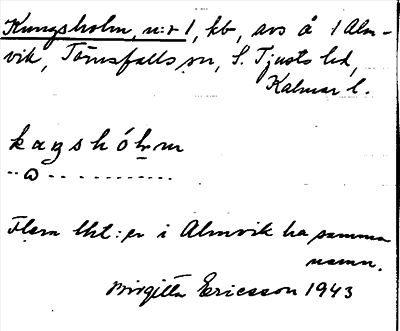 Kungsholm, n:r 1, kb, avs å 1 Alm-
vik, Törnsfalls sn, S. Tjusts hd,
Kalmar l.
kaŋshólm
Flera lht:er i Almvik ha samma
namn.
Birgitta Ericsson 1943